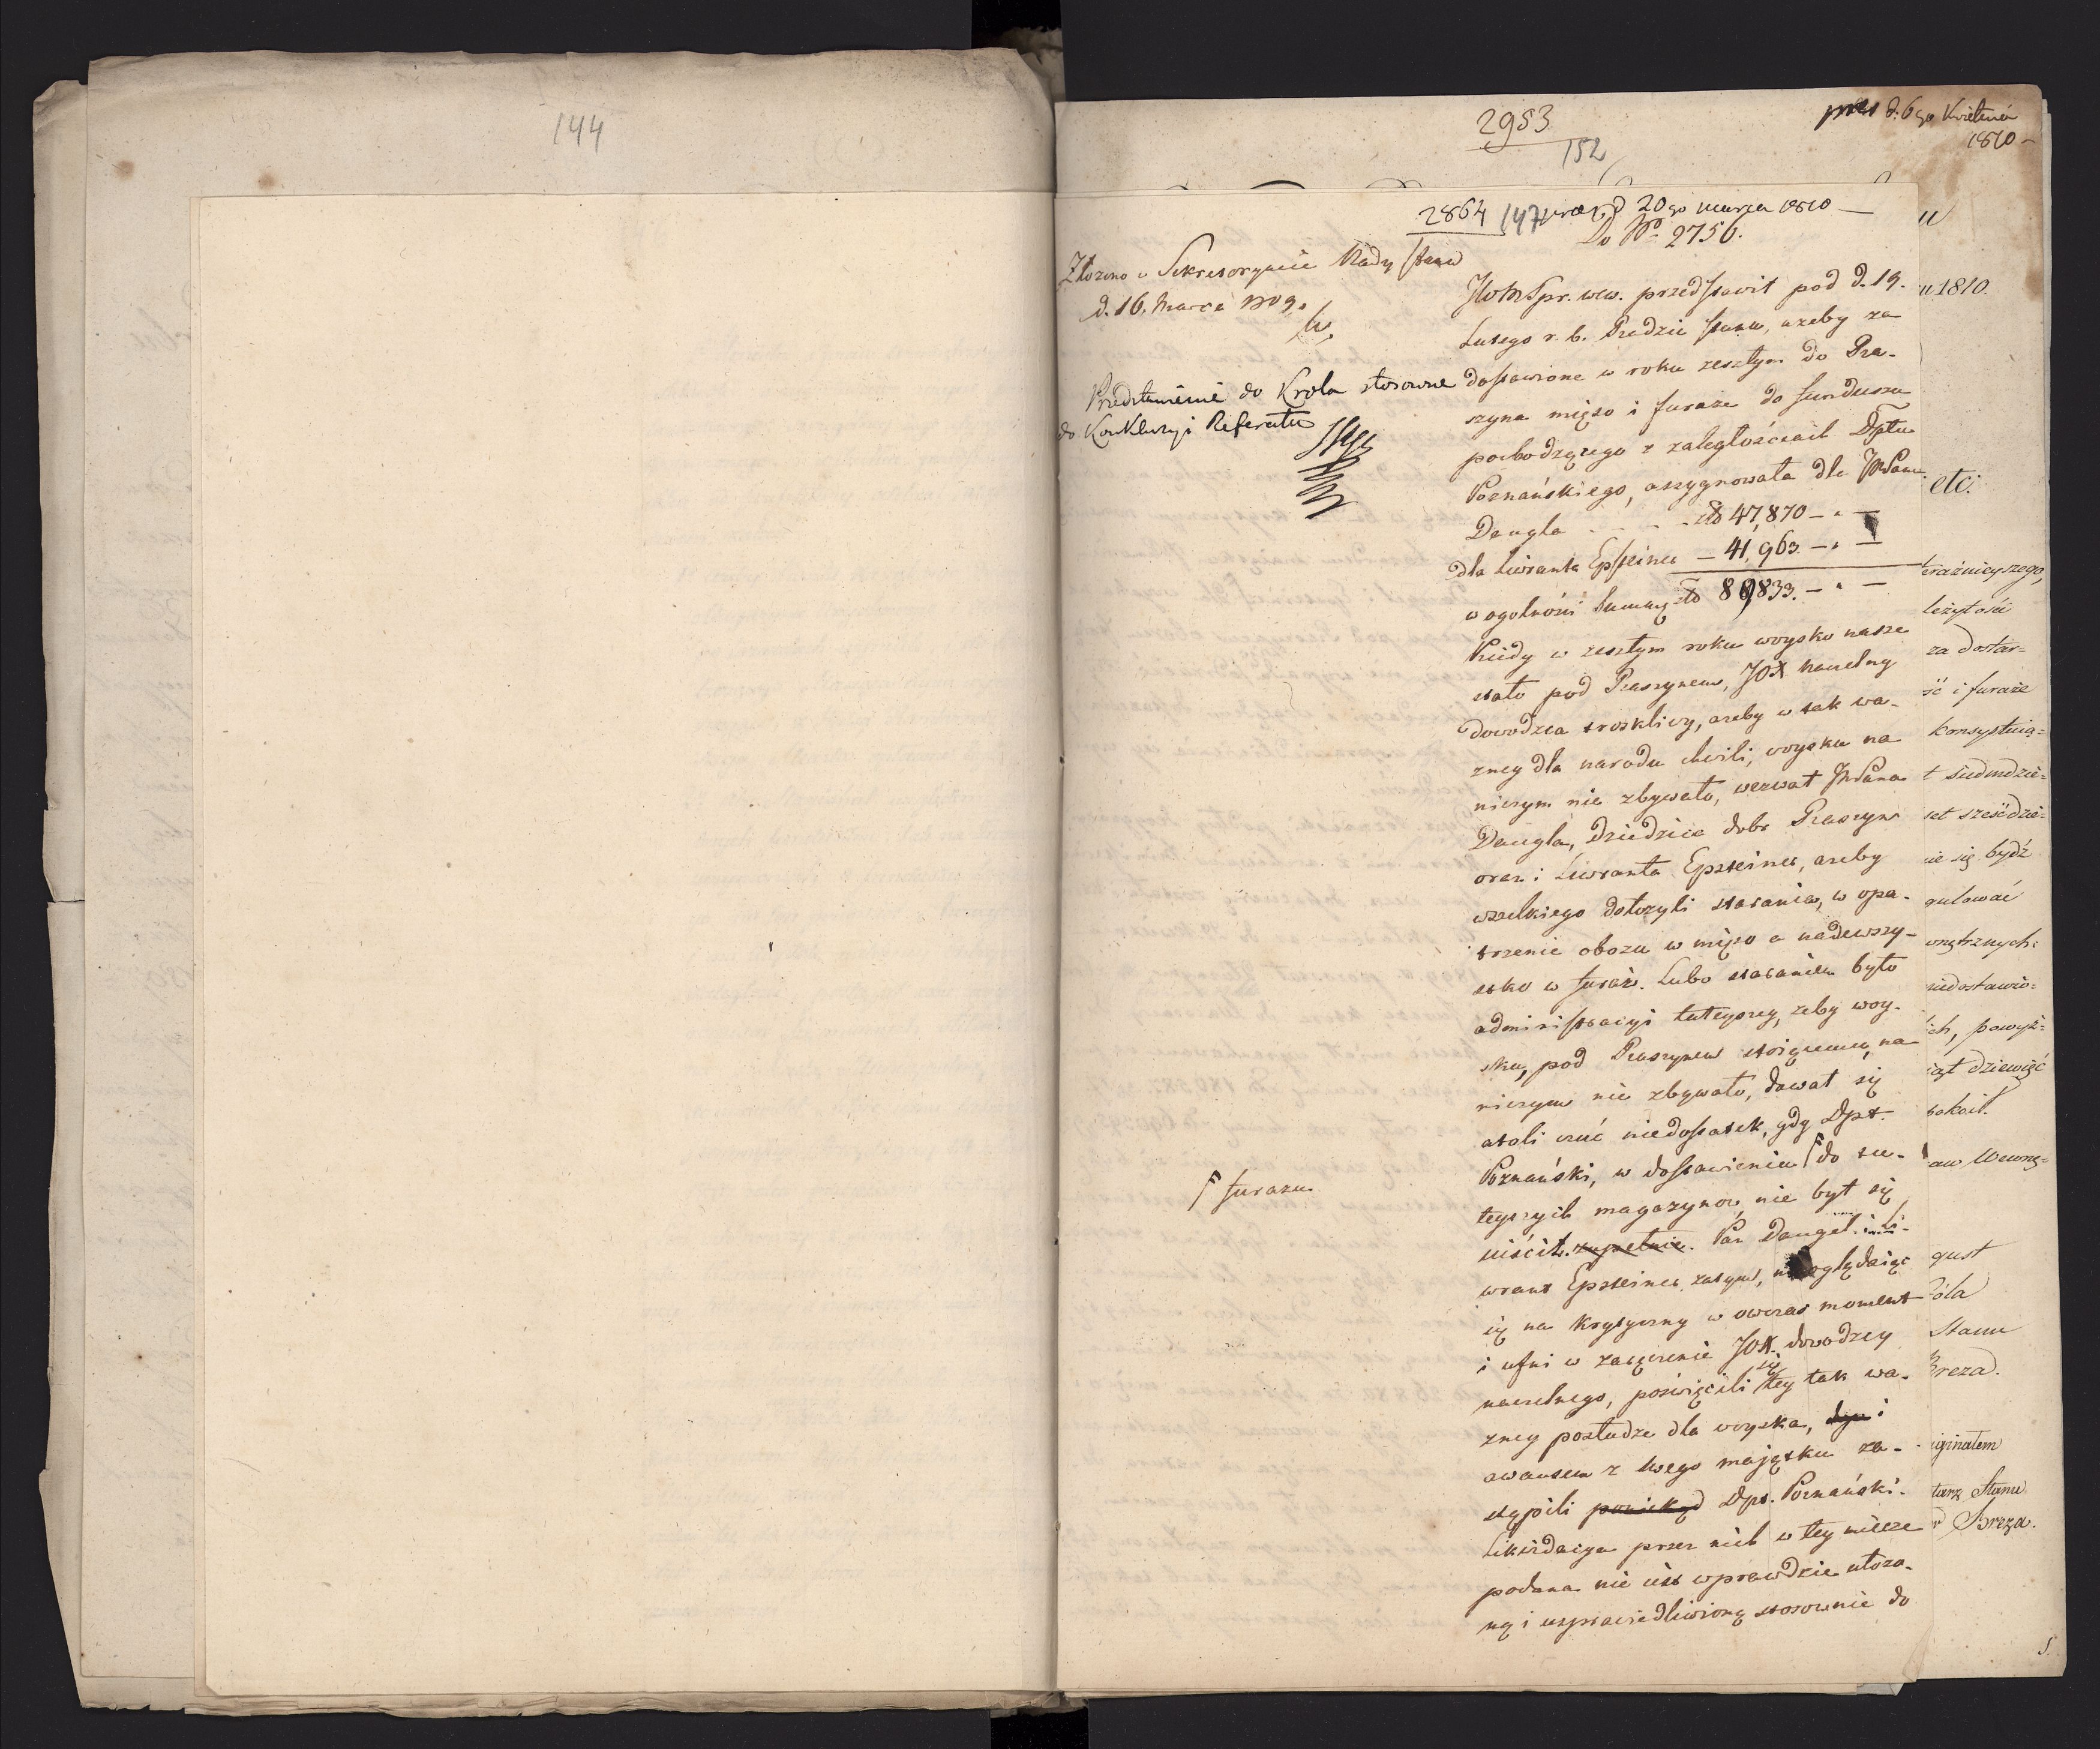 144
2953
152
pres d. 6go Kwietnia
1810 –
2864 147
d 20go marca 1810 —
Do No 2756.
Złożono w Sekretaryacie Rady Stanu
d. 16. Marca
Przedstawienie do Krola stosowne
do Konkluzyi Referatu
JWMSpr. wew. przedstawił pod d. 19.
Lutego r. b. Radzie Stanu, azeby za
dostawione w roku zeszłym do Ra-
szyna mięso i furaże do funduszu
pochodzącego z zaległościach Dptu
Poznańskiego, assygnowała dla JWPana
Dangla - - - - zło 47,870 – " –
dla Liwranta Epsteina – 41,963. – " –
w ogolności summę zło 89,833. – " –
Kiedy w zeszłym roku woysko nasze
stało pod Raszynem, JOX naczelny
dowodzca troskliwy, azeby w tak wa-
zney dla narodu chwili, woysku na
niczym nie zbywało, wezwał JWPana
Dangla, dziedzica dobr Raszyn
oraz i Liwranta Epsteina, azeby
wszelkiego dołozyli starania, w opa-
trzenie obozu w mięso a nadewszy-
stko w furaż. Lubo staraniem było
administracyi tuteyszey, zeby woy-
sku, pod Raszynem stoiącemu, na
niczym nie zbywało, dawał się
atoli czuć niedostatek, gdy Dpt.
Poznański, w dostawieniu do tu-
furazu
teyszych magazynow, nie był się
uiścił zupełnie. Pan Dangel i Li-
wrant Epsteina zatym, nieoglądaiąc
się na krytyczny w owczas moment
i ufni w zaręczenie JOX. dowodzcy
naczelnego, poświęcili się tey tak wa-
zney posłudze dla woyska, i
awansem z swego majątku za-
stąpili poniekąd Dpt. Poznański.
Likwidacya przez nich w tey mierze
podana nie iest wprawdzie ułozo-
ną i usprawiedliwioną stosownie do
u
u 1810.
etc.
teraznieyszego,
leżytość
za dostar=
ść i furaże
konsystuią=
t siedmdzie=
set sześćdzie=
ie się bydź
gulować
wnętrznych
niedostawio=
ich, powyż=
iąt dziewięć
raw Wewnę=
gust
Króla
Stanu
Breza.
iginałem
tarz Stanu
Breza.